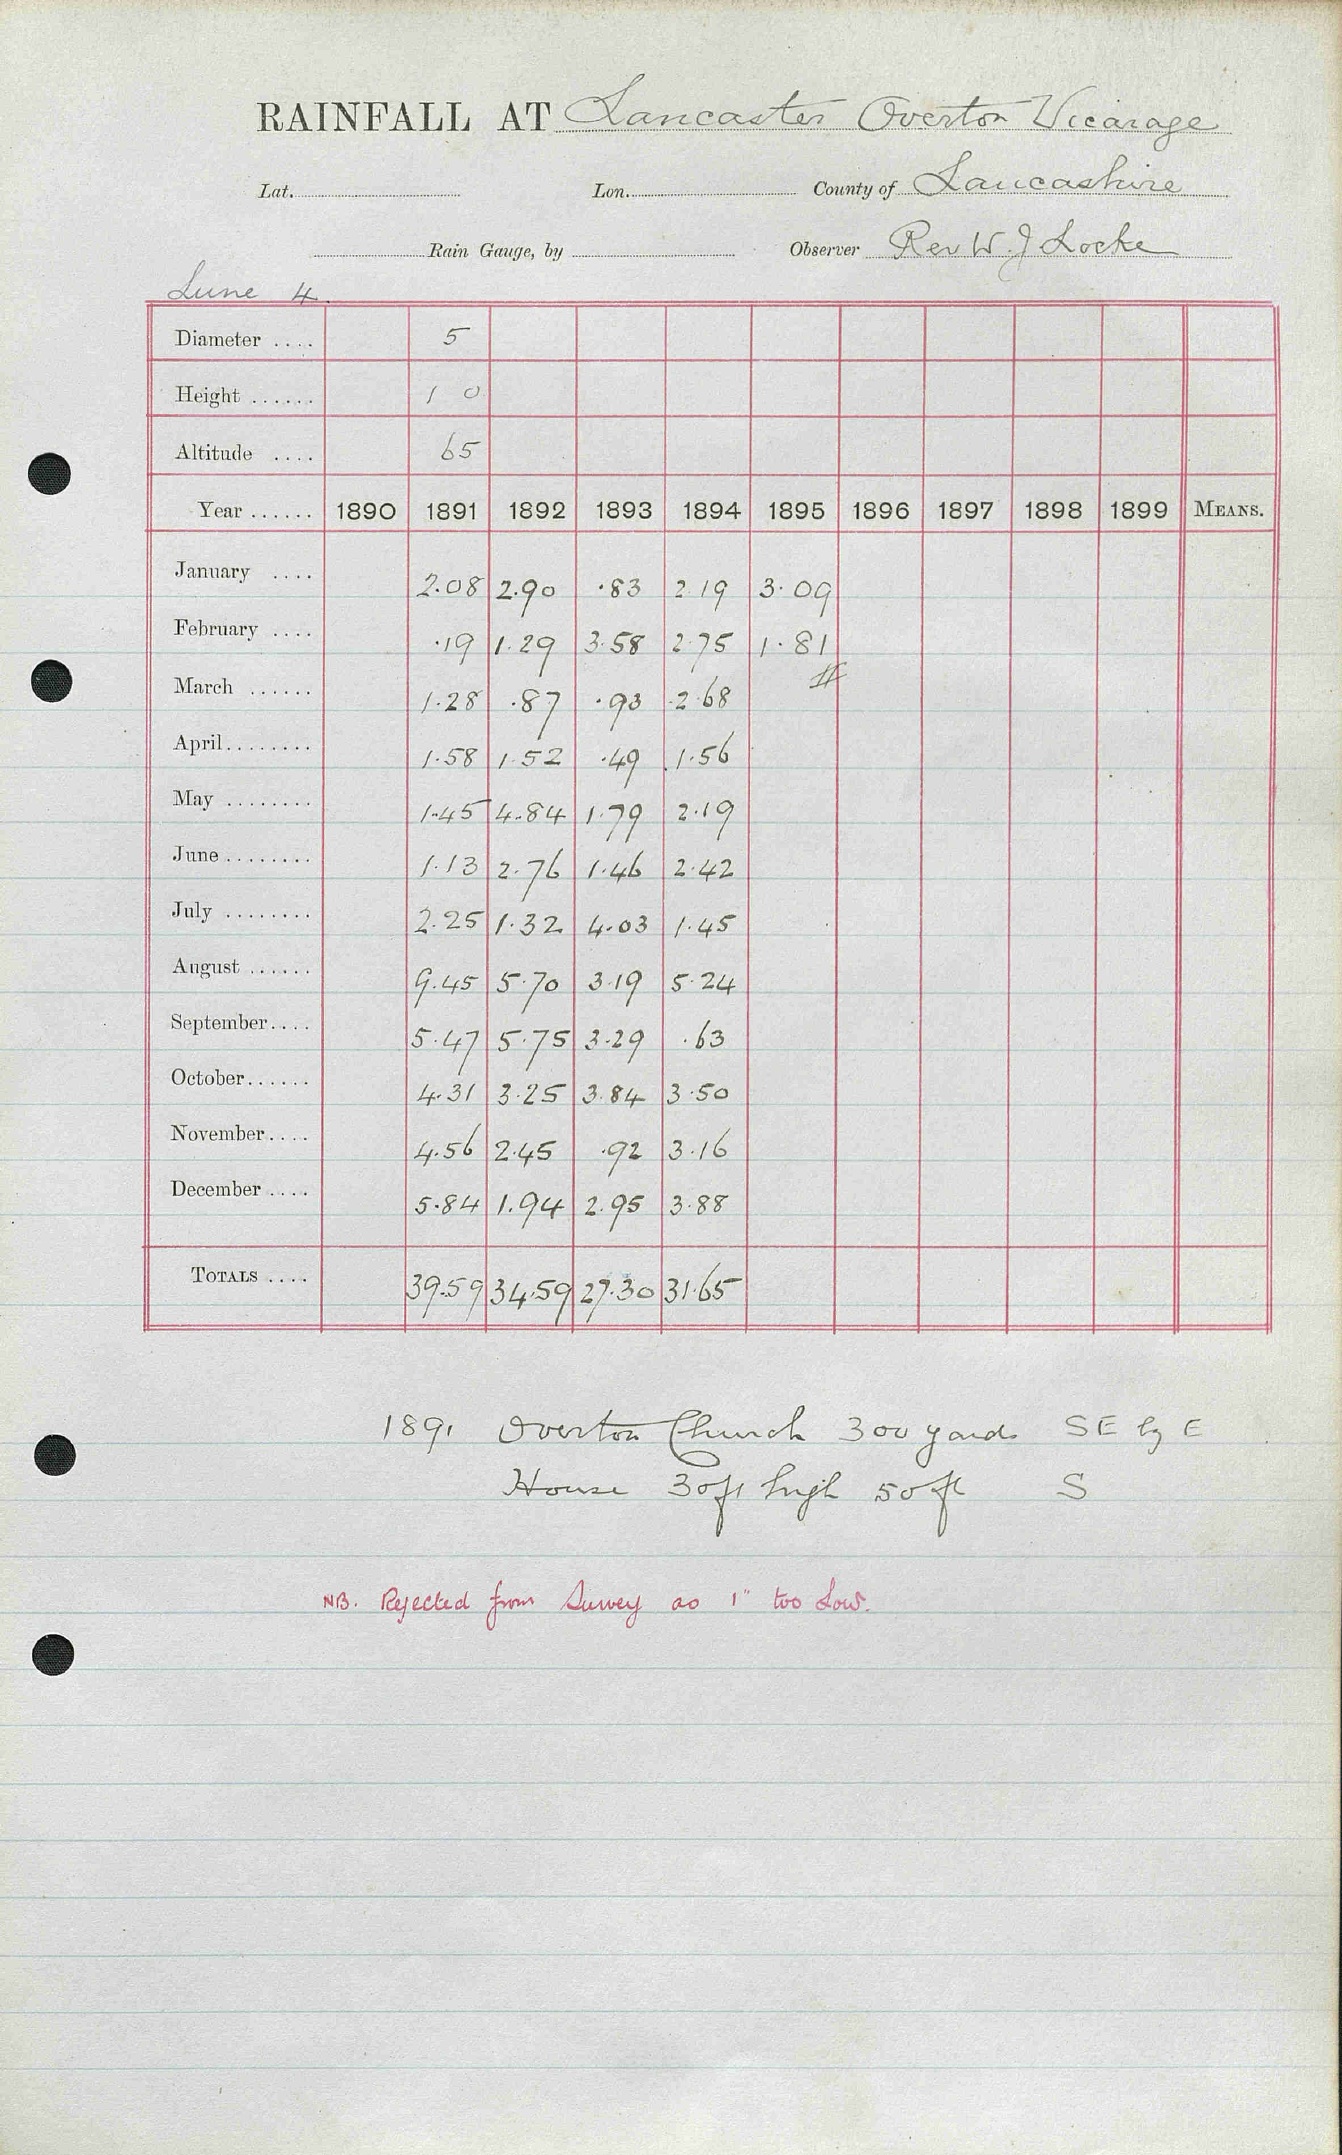 RAINFALL AT Lancaster Overton Vicarage
Lat. Lon. County of Lancashire
Rain Gauge, by Observer Rev W. J Locke
Lune 4.
Diameter .... 5
Height ...... 1 0
Altitude .... 65
Year ...... 1890 1891 1892 1893 1894 1895 1896 1897 1898 1899 MEANS.
January .... 2.08 2.90 .83 2.19 3.09
February .... .19 1.29 3.58 2.75 1.81
March ...... 1.28 .87 .93 2.68
April........ 1.58 1.52 .49 1.56
May ........ 1.45 4.84 1.79 2.19
June........ 1.13 2.76 1.46 2.42
July ........ 2.25 1.32 4.03 1.45
August ...... 9.45 5.70 3.19 5.24
September.... 5.47 5.75 3.29 .63
October...... 4.31 3.25 3.84 3.50
November.... 4.56 2.45 .92 3.16
December .... 5.84 1.94 2.95 3.88
TOTALS .... 39.59 34.59 27.30 31.65
1891 Overton Church 300 yards SE by E
House 30ft high 50ft S
NB. Rejected from Survey as 1" too Low.